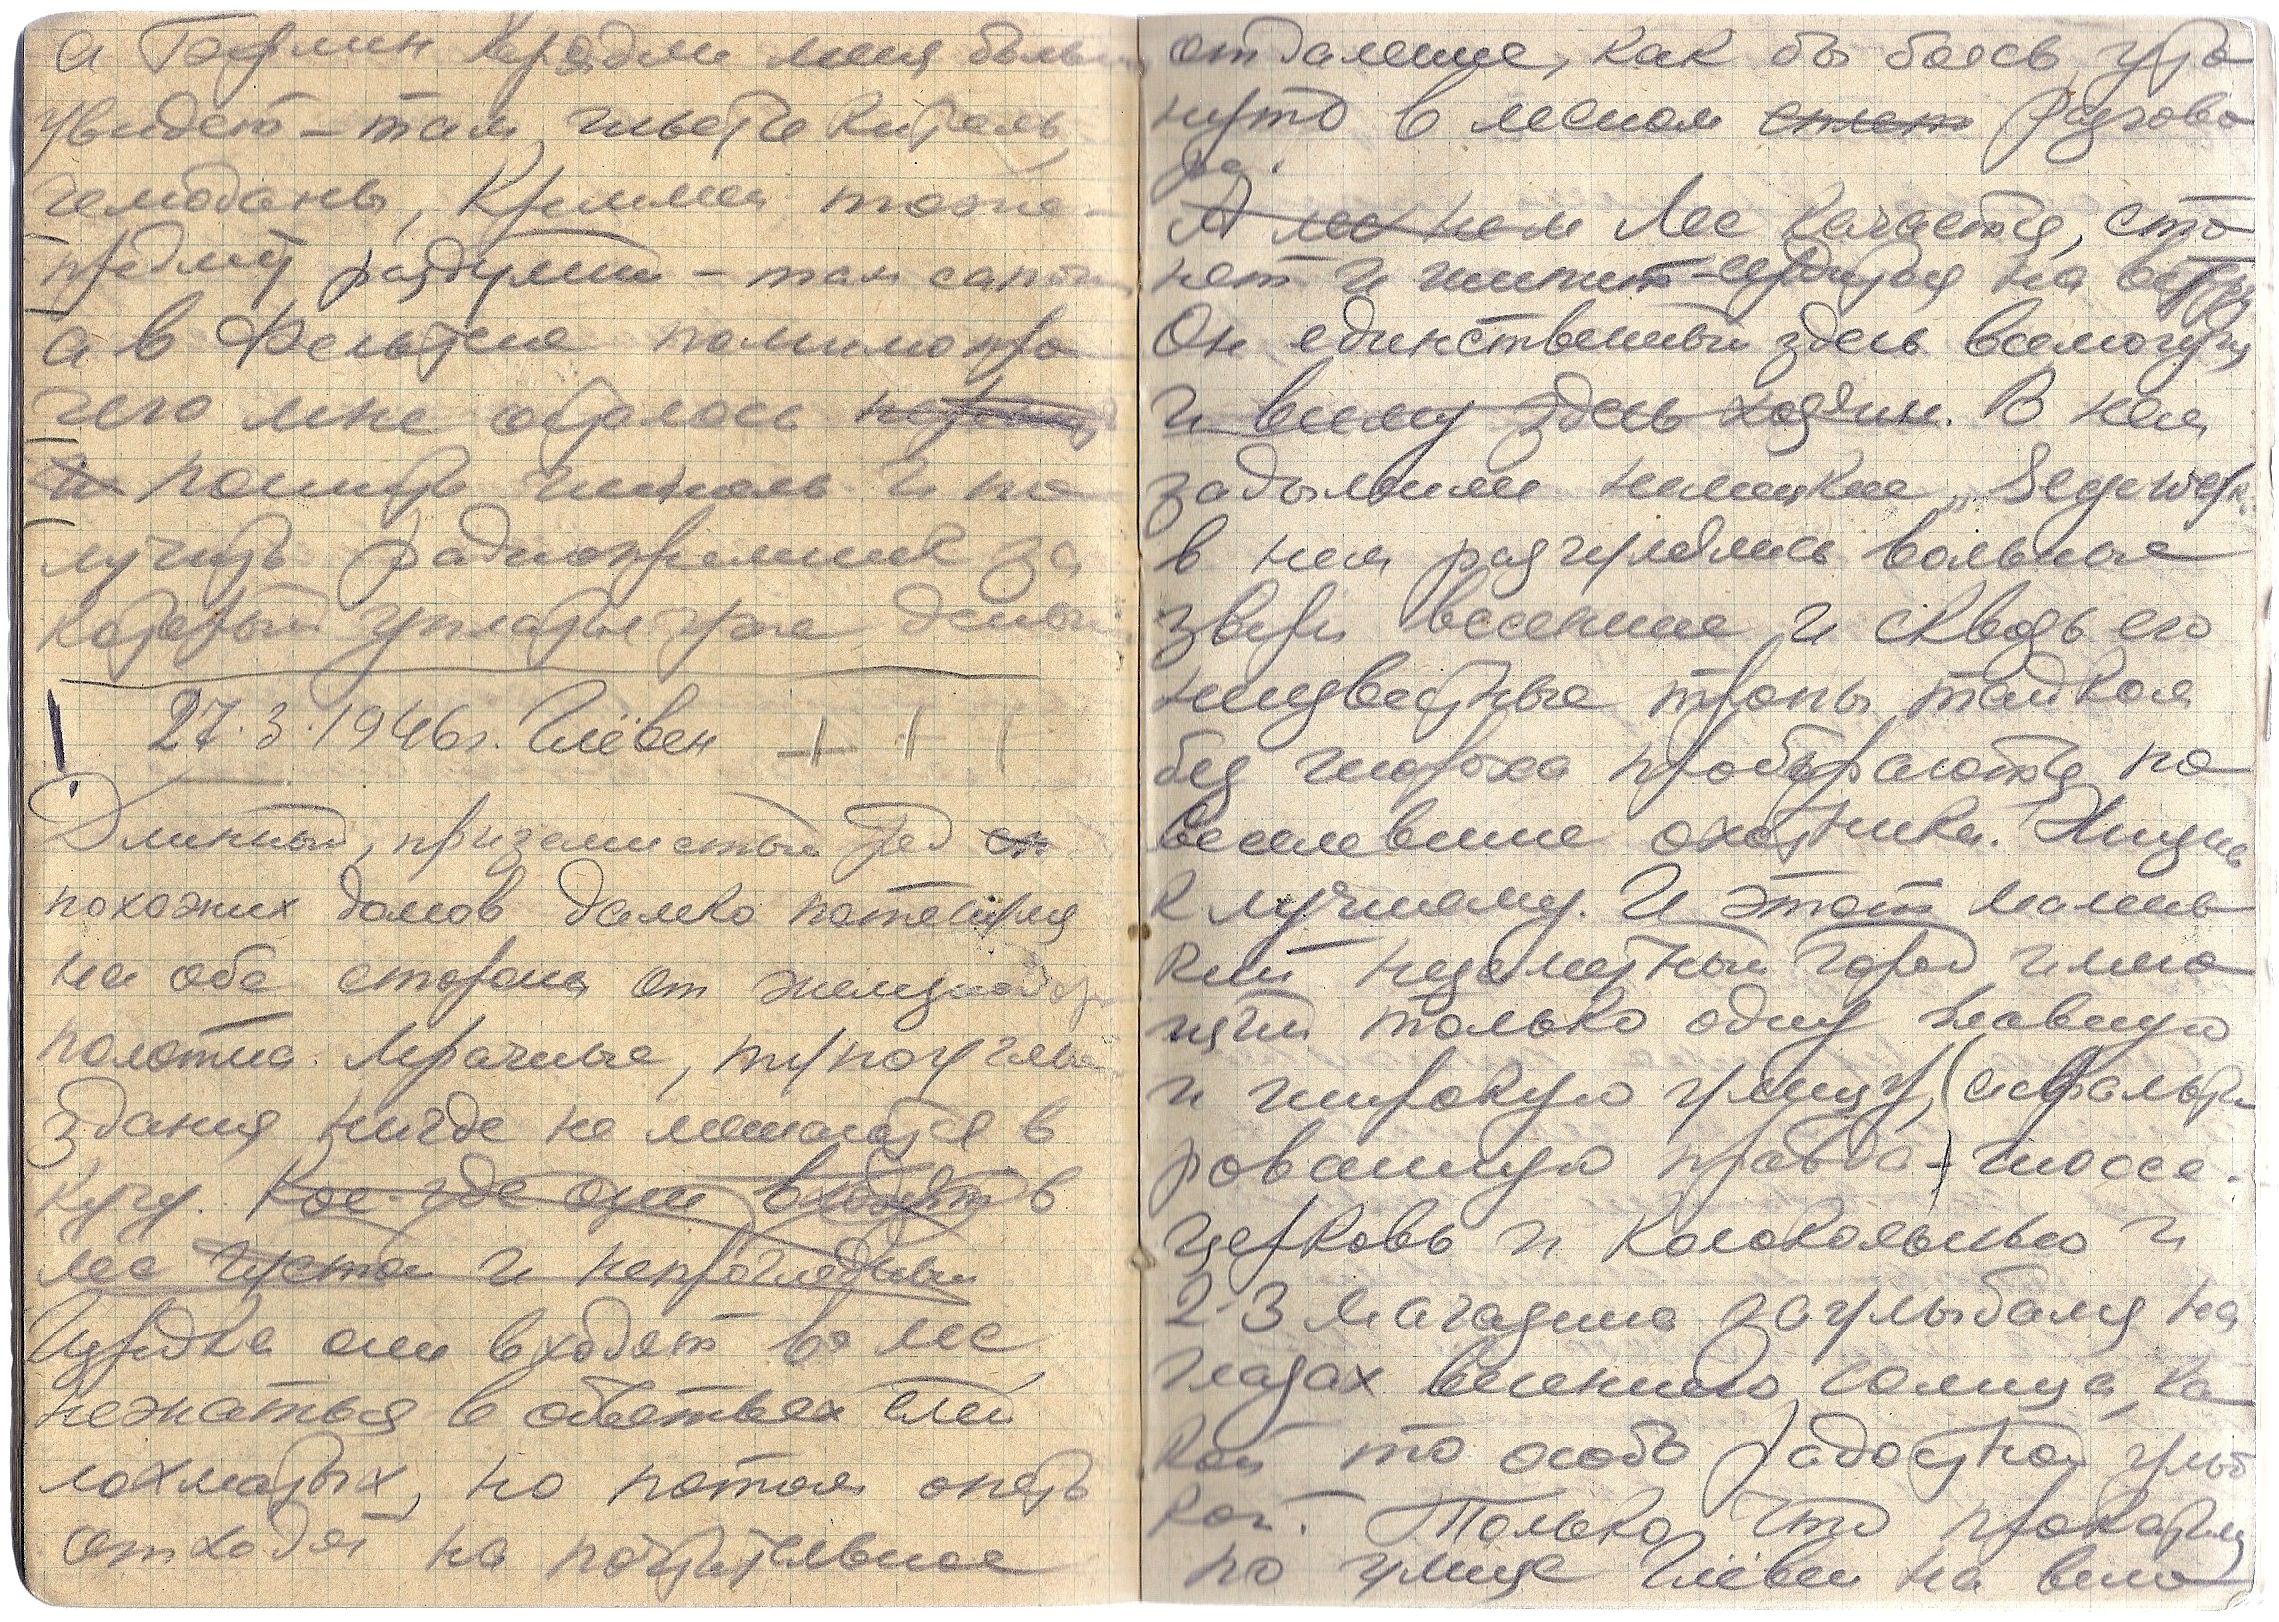 а Берлин врядли меня больше
увидет – там шьется китель,
чемоданы, Креммен тоже –
предмет раздумий – там сапоги
а в Фельтене помимо про
чего мне осталось
пошить шинель и по
лучить радиоприемник за
который уплатил уже деньги
27.3.1946г. Глёвен
Длинный, приземистый ряд
похожих домов далеко потянулся
на обе стороны от железнодор.
полотна. Мрачные, тупоуглые
здания нигде не мешаются в
кучу. Кое-где они входят в
лес густой и непроглядный
Изредка они входят в лес,
нежаться в объятьях елей
лохматых, но потом опять
отходят на почтительное
отдаление, как бы боясь уто
нуть в лесном разгово
ре.
А лес Лес качается, сто
нет и шипит сердится на ветер
Он единственный здесь всемогущ
и всему здесь хозяин. В нем
задымили немецкие „Segewerk.
в нем разгулялись вольные
звери весенние и сквозь его
неизвестные тропы тайком
без шороха пробираются по
веселевшие охотники. Жизнь
к лучшему. И этот малень
кий незаметный город имею
щий только одну главную
и широкую улицу, (асфальти
рованную правда) – шоссе.
церковь и колокольню и
2-3 магазина заулыбался на
глазах весеннего солнца, ка
кой то особо радостной улыб
кой. Только что прокатил
по улице Глёвен на вело